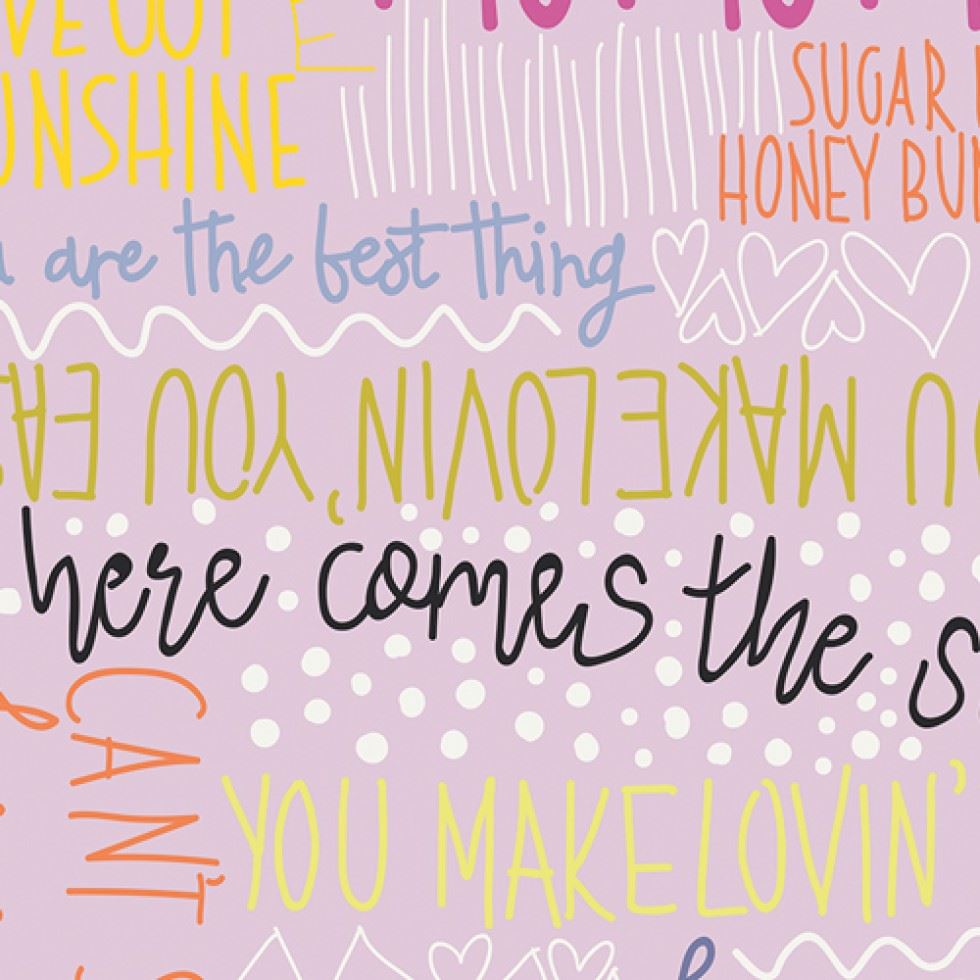 VE GOT
UNSHINE
SUGAR
HONEY BUN
are the best thing
U MAKE LOVIN' YOU EAS
here comes the s
CAN'T
YOU MAKE LOVIN'